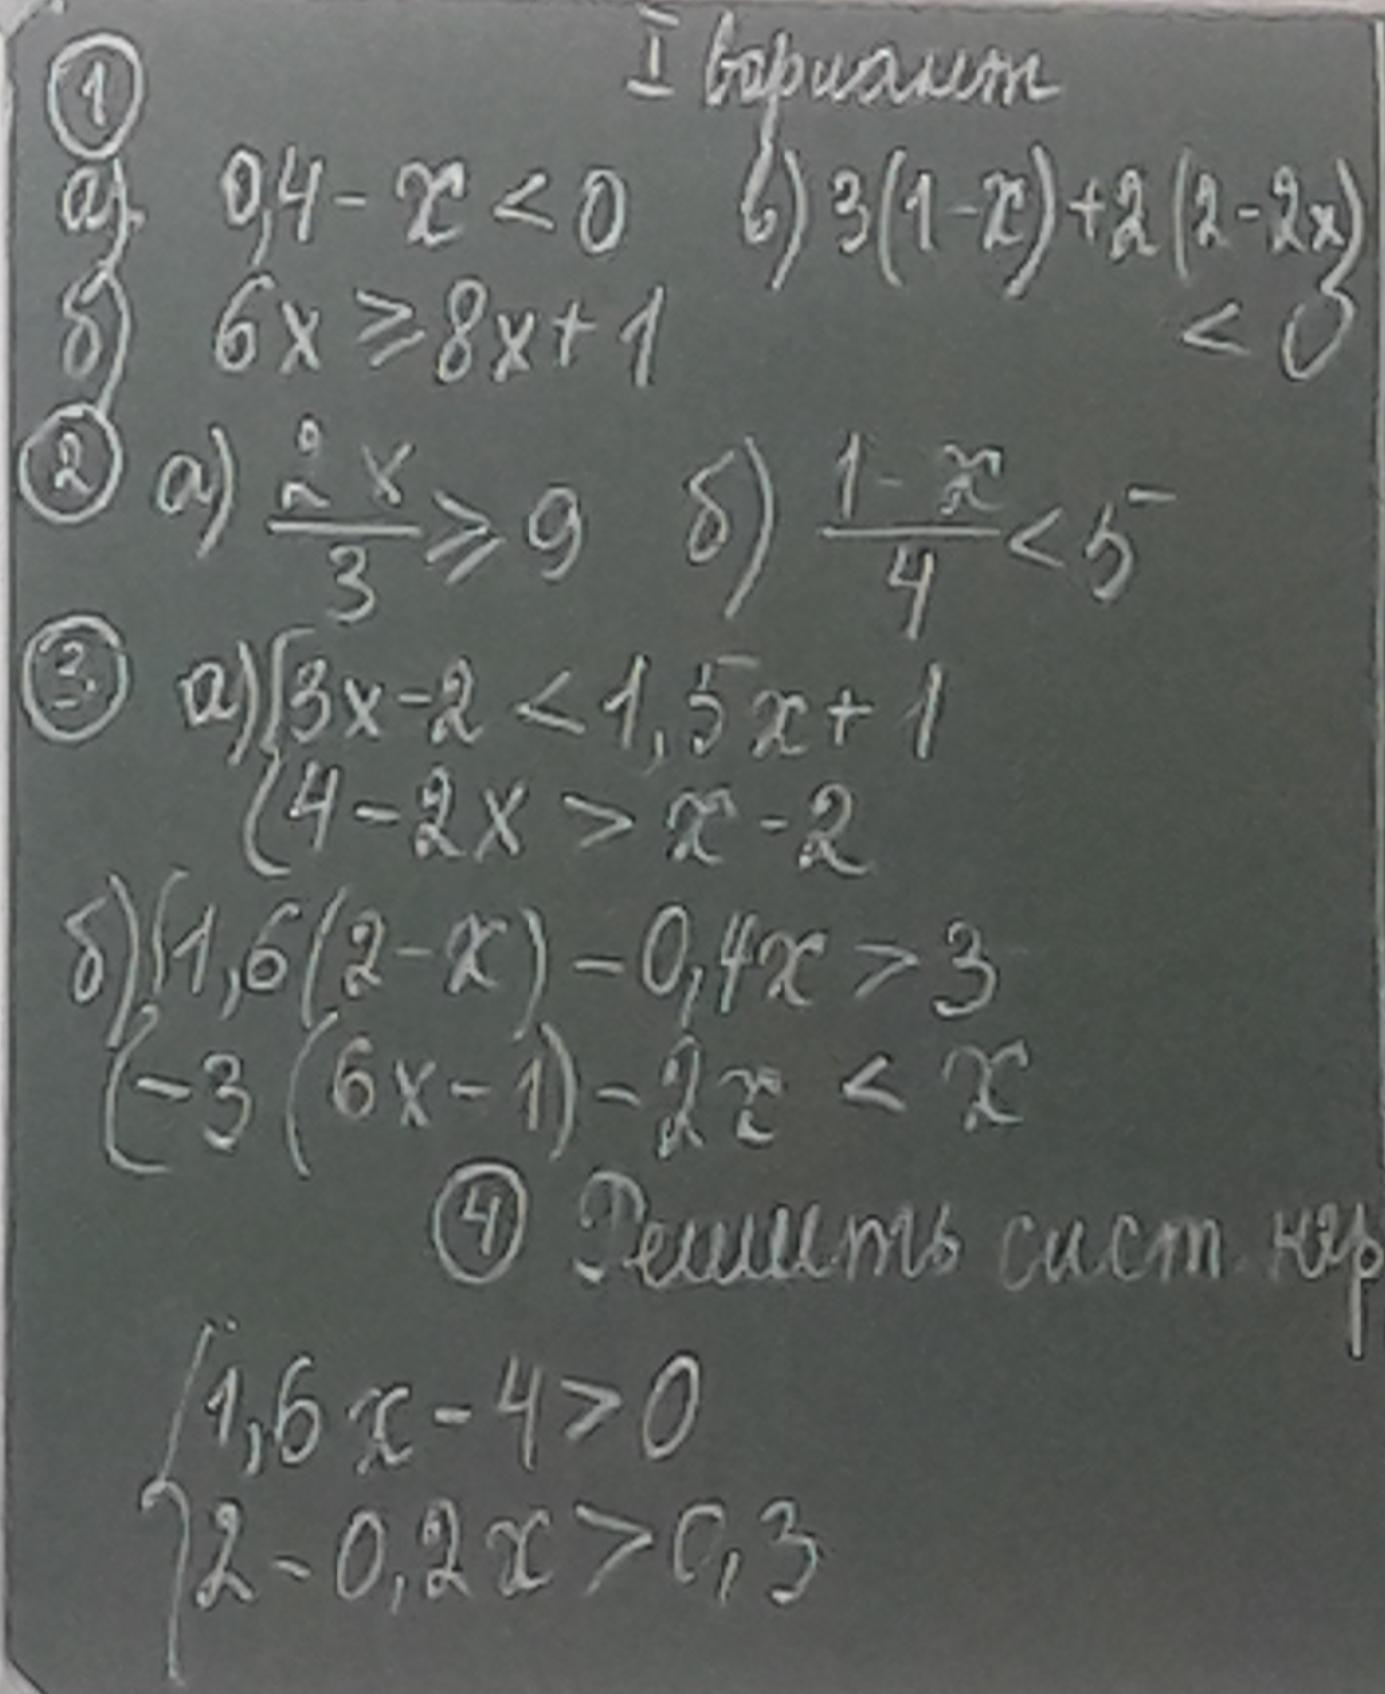 I вариант
①
а) 0,4 - x < 0 в) 3(1-x)+2(2-2x)
< 0
б) 6x ≥ 8x + 1
② а) 2x/3 ≥ 9 б) 1-x/4 < 5
③ а) { 3x-2 < 1,5x + 1
4 - 2x > x - 2
б) { 1,6(2-x) - 0,4x > 3
-3(6x-1) - 2x < x
④ Решить сист. нер
{ 1,6x - 4 > 0
2 - 0,2x > 0,3